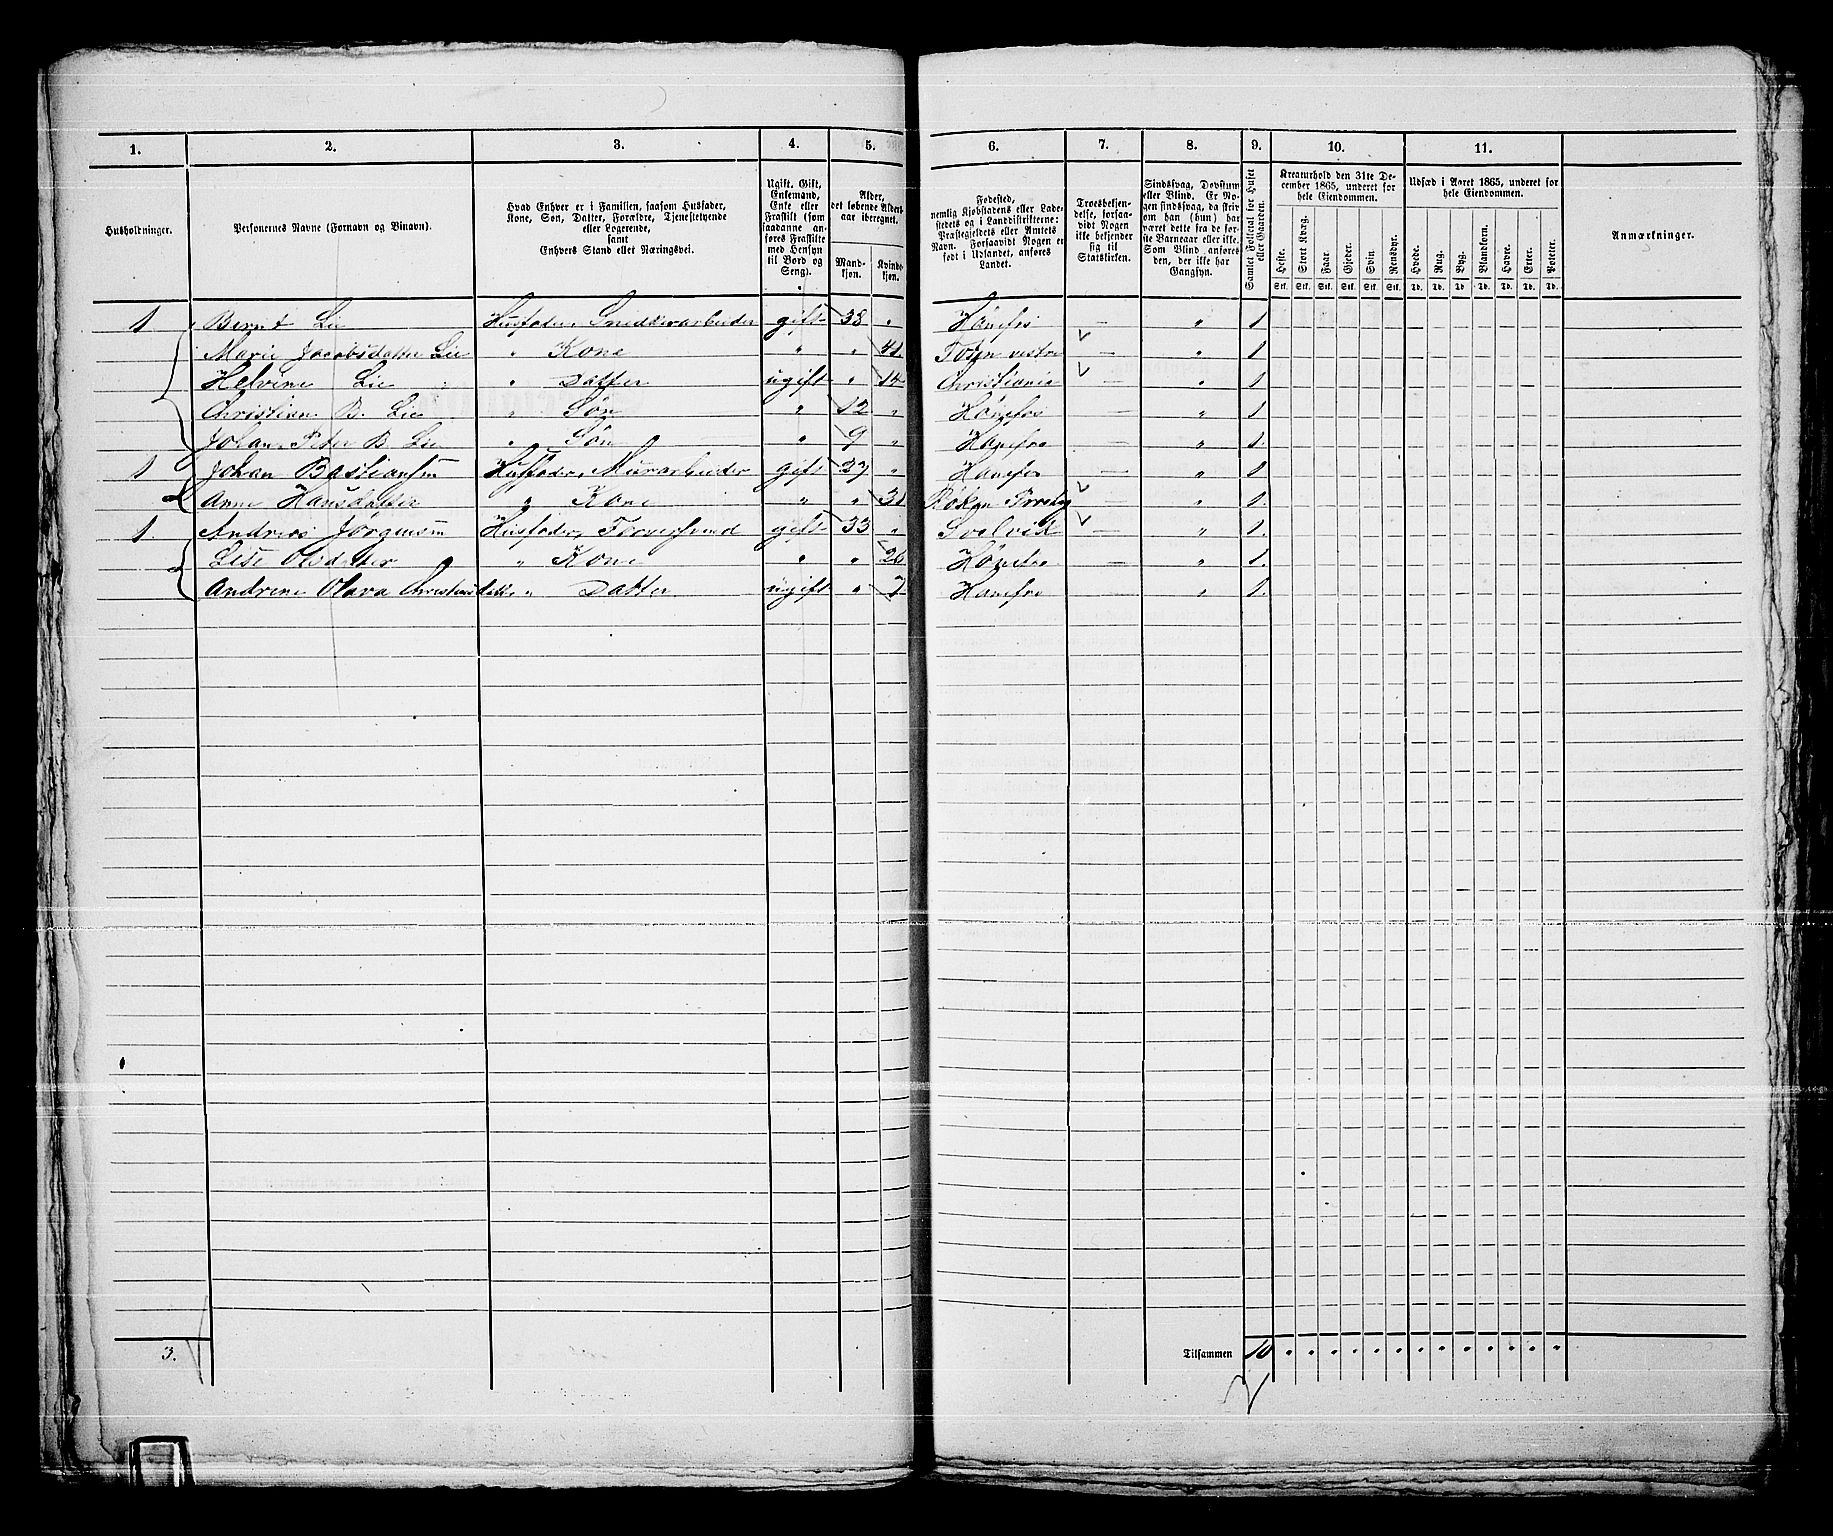 1. 2. 3. 4. 5. 6. 7. 8. 9. 10. 11.
Husholdninger.
Personernes Navne (Fornavn og Binavn).
Hvad Enhver er i Familien, saasom Husfader,
Kone, Søn, Datter, Forældre, Tjenestetyende
eller Logerende,
samt
Enhvers Stand eller Næringsvei.
Ugift, Gift,
Enkemand,
Enke eller
Fraskilt (som
saadanne an-
føres Fraskilte
med Hensyn
til Bord og
Seng).
Alder,
det løbende Alders-
aar iberegnet.
Mand-
kjøn.
Kvinde-
kjøn.
Fødested,
nemlig Kjøbstadens eller Lade-
stedets og i Landdistrikterne:
Præstegjeldets eller Amtets
Navn. Forsaavidt Nogen er
født i Udlandet, anføres
Landet.
Troesbekjen-
delse, forsaa-
vidt Nogen
ikke bekjender
sig til
Statskirken.
Sindssvag, Døvstum
eller Blind. Er No-
gen sindssvag, da skri-
ves om han (hun) har
været dette fra de før-
ste Barneaar eller ikke.
Som Blind anføres
den, der ikke har
Gangsyn.
Samlet Folketal for Huset
eller Gaarden.
Kreaturhold den 31te De-
cember 1865, underet for
hele Eiendommen.
Heste. Stort Kvæg. Faar. Gjeder. Svin. Rensdyr.
Stk. Stk. Stk. Stk. Stk. Stk.
Udsæd i Aaret 1865, underet for
hele Eiendommen.
Hvede. Rug. Byg. Blandkorn. Havre. Erter. Poteter.
Td. Td. Td. Td. Td. Td. Td.
Anmærkninger.
1 Bernt Lie Husfader, Snedkerarbeider gift 38 " Hönefos — " 1
Marie Jacobsdatter Lie " Kone " " 41 Toten vestre — " 1
Helvine Lie " Datter ugift " 14 Christiania — " 1
Christian B. Lie " Søn " 12 " Hönefos — " 1
Johan Peter B. Lie " Søn " 9 " Hönefos — " 1.
1 Johan Bastiansen Husfader, Murarbeider gift 27 " Hönefos — " 1
Anne Hansdatter " Kone " " 31 Röken — " 1.
1. Andreas Jörgensen Husfader, gift 33 " Svelvik — " 1.
Lise Olsdatter " Kone " " 26 Hönefos — " 1.
Andrine Olava Christiansdatt. " Datter ugift " 7 Hönefos " 1.
3.
Tilsammen 10 " " " " " " " " " " " " "